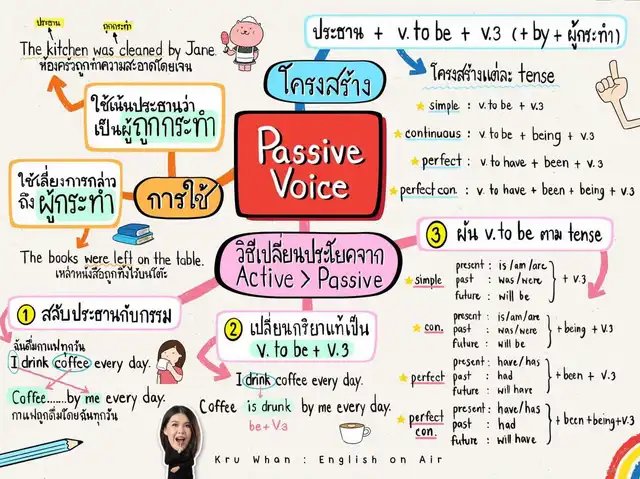 ประธาน ถูกกระทำ
The kitchen was cleaned by Jane.
ห้องครัวถูกทำความสะอาดโดยเจน
ใช้เน้นประธานว่า
เป็นผู้ถูกกระทำ
ใช้เลี่ยงการกล่าว
ถึงผู้กระทำ
การใช้
The books were left on the table.
เหล่าหนังสือถูกทิ้งไว้บนโต๊ะ
โครงสร้าง
Passive
Voice
ประธาน + v. to be + v.3 (+ by + ผู้กระทำ)
โครงสร้างแต่ละ tense
simple : v. to be + v.3
continuous : v. to be + being + v.3
perfect : v. to have + been + v.3
perfect con. : v. to have + been + being + v.3
วิธีเปลี่ยนประโยคจาก
Active > Passive
1 สลับประธานกับกรรม
ฉันดื่มกาแฟทุกวัน
I drink coffee every day.
Coffee......by me every day.
กาแฟถูกดื่มโดยฉันทุกวัน
2 เปลี่ยนกริยาแท้เป็น
v. to be + v.3
I drink coffee every day.
Coffee is drunk by me every day.
be+V3
3 ผัน v. to be ตาม tense
simple
present : is /am /are
past : was/were
future : will be
+ v.3
con.
present : is/am/are
past : was/were
future : will be
+ being + v.3
perfect
present : have/has
past : had
future : will have
+ been + v.3
perfect
con.
present : have/has
past : had
future : will have
+ been+being+v.3
Kru Whan : English on Air